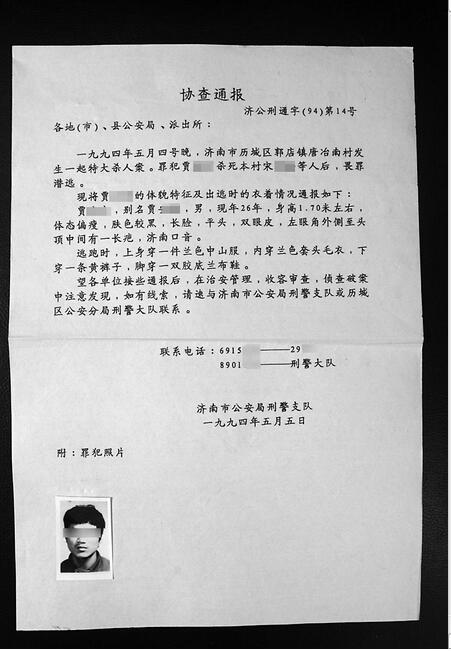 协查通报
济公刑通字(94)第14号
各地(市)、县公安局、派出所:
一九九四年五月四号晚,济南市历城区郭店镇唐冶南村发
生一起特大杀人案。罪犯贾 杀死本村宋 等人后,畏罪
潜逃。
现将贾 的体貌特征及出逃时的衣着情况通报如下:
贾 ,别名贾 ,男,现年26年,身高1.70米左右,
体态偏瘦,肤色较黑,长脸,平头,双眼皮,左眼角外侧至头
顶中间有一长疤,济南口音。
逃跑时,上身穿一件兰色中山服,内穿兰色套头毛衣,下
穿一条黄裤子,脚穿一双胶底兰布鞋。
望各单位接些通报后,在治安管理,收容审查,侦查破案
中注意发现,如有线索,请速与济南市公安局刑警支队或历城
区公安分局刑警大队联系。
联系电话:6915 ——29
8901 ——刑警大队
济南市公安局刑警支队
一九九四年五月五日
附:罪犯照片